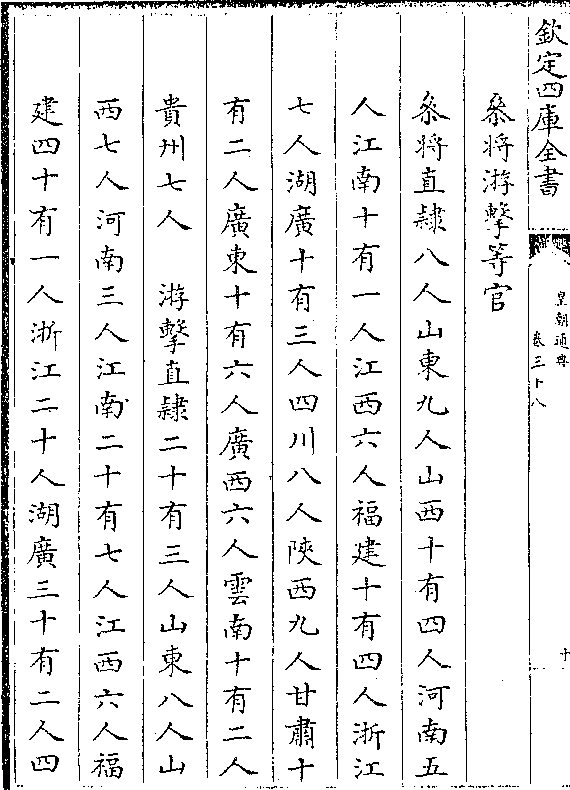 欽定四庫全書
皇朝通典
卷三十八
十
叅將游擊等官
叅將直隸八人山東九人山西十有四人河南五
人江南十有一人江西六人福建十有四人浙江
七人湖廣十有三人四川八人陝西九人甘肅十
有二人廣東十有六人廣西六人雲南十有二人
貴州七人　游擊直隸二十有三人山東八人山
西七人河南三人江南二十有七人江西六人福
建四十有一人浙江二十人湖廣三十有二人四